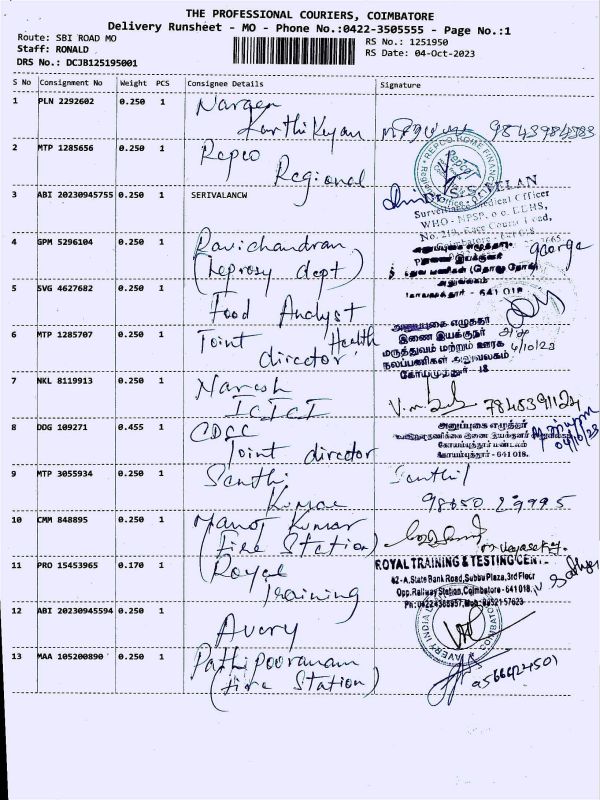 THE PROFESSIONAL COURIERS, COIMBATORE
Delivery Runsheet - MO - Phone No.:0422-3505555 - Page No.:1
Route: SBI ROAD MO
RS No.: 1251950
Staff: RONALD
RS Date: 04-Oct-2023
DRS No.: DCJB125195001
S No Consignment No Weight PCS Consignee Details Signature
1 PLN 2292602 0.250 1 Naragen
Karthikeyan 9843984383
2 MTP 1285656 0.250 1 Repco
Regional
REPCO HOME FINANCE
3 ABI 20230945755 0.250 1 SERIVALANCW
Surveillance Medical Officer
WHO - NPSP,
4 GPM 5296104 0.250 1 Ravichandran george
(Leprosy dept)
அலுவலகம்
கோயமுத்தூர் - 641 018
5 SVG 4627682 0.250 1 Food Analyst
6 MTP 1285707 0.250 1 Joint Health
director
அனுப்புகை எழுத்தர்
இணை இயக்குநர்
மருத்துவம் மற்றும் ஊரக
நலப்பணிகள் அலுவலகம்
கோயமுத்தூர் - 18
4/10/23
7 NKL 8119913 0.250 1 Naresh
ICICI
8 DDG 109271 0.455 1 CDCC
Joint director
அனுப்புகை எழுத்தர்
கோயம்புத்தூர் மண்டலம்
கோயம்புத்தூர் - 641 018.
04/10/23
9 MTP 3055934 0.250 1 Senthi Senthil
Kumar 98650 29995
10 CMM 848895 0.250 1 Manoj Kumar
(Fire Station)
11 PRO 15453965 0.170 1 Royal
Training
ROYAL TRAINING & TESTING CENT
62-A, State Bank Road, Subbu Plaza, 3rd Floor
Opp. Railway Station, Coimbatore - 641 018.
12 ABI 20230945594 0.250 1 Avery
AVERY INDIA
13 MAA 105200890 0.250 1 Pathipooranam
(Fire Station)